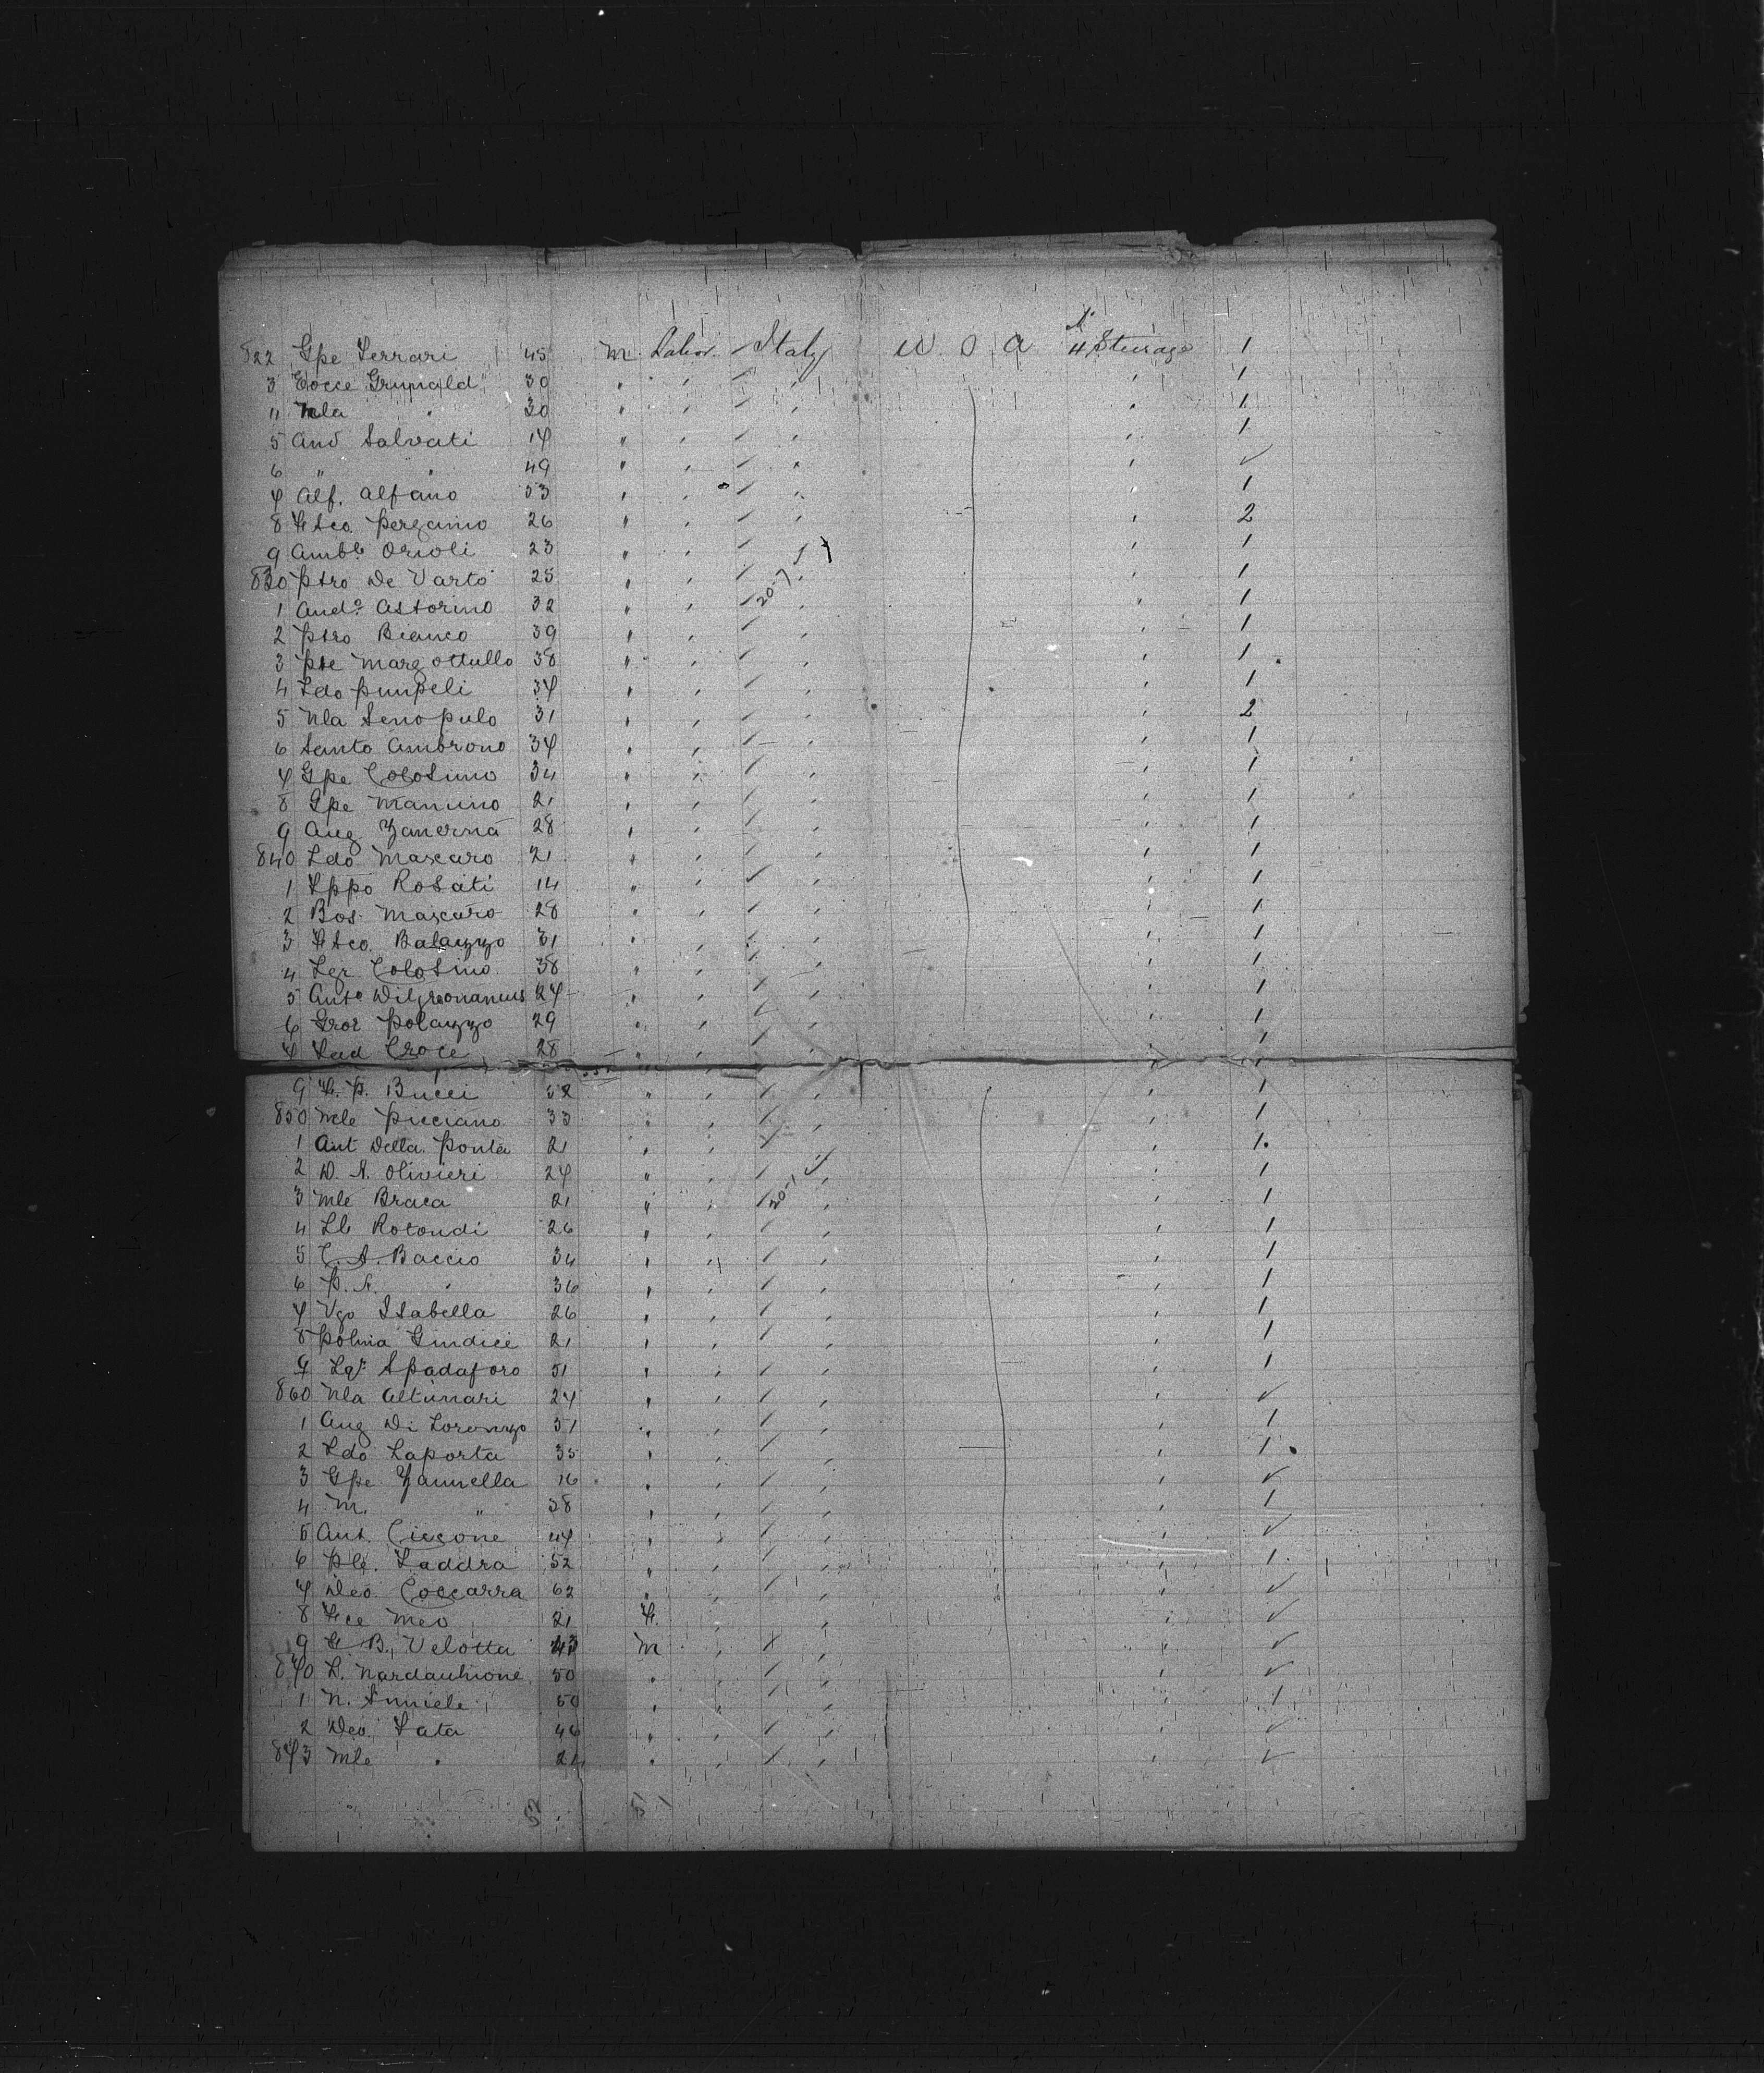 822 Gpe Ferrari 45 m Labor. / Italy U S A 4 Steerage 1
3 Grunald 30 " ' / ' ' 1
4 Nla " 30 " ' / ' ' 1
5 And Salvati 17 " ' / ' ' 1
6 " " 49 " ' / ' ' ✓
7 Alf. Alfano 33 " ' / ' ' 1
8 Fsco Pergamo 26 " ' / ' ' 2
9 Ambl. Orioli 23 " ' / ' ' 1
830 Ptro De Varto 25 " ' / ' ' 1
1 And.o Astorino 32 " ' / 20-7 ' ' 1
2 Ptro Bianco 39 " ' / ' ' 1
3 Pte Margottullo 38 " ' / ' ' 1
4 Ldo Pumpeli 37 " ' / ' ' 1
5 Nla Senopulo 31 " ' / ' ' 2
6 Santo Ambrono 37 " ' / ' ' 1
7 Gpe Colosimo 34 " ' / ' ' 1
8 Gpe Mancino 21 " ' / ' ' 1
9 Aug. Zanerna 28 " ' / ' ' 1
840 Ldo Mascaro 21 " ' / ' ' 1
1 Fppo Rosati 14 " ' / ' ' 1
2 Bos. Mascaro 28 " ' / ' ' 1
3 Fsco. Balazzo 31 " ' / ' ' 1
4 Lgr Colosimo 38 " ' / ' ' 1
5 Anto 27 " ' / ' ' 1
6 Polazzo 29 " ' / ' ' 1
7 Croce 28 " ' / ' ' 1
9 F. P. Bucci 32 " ' / ' ' 1
850 Mle Picciano 33 " ' / ' ' 1
1 Ant Della Ponta 21 " ' / ' ' 1
2 D. A. Olivieri 27 " ' / ' ' 1
3 Mle Braca 21 " ' / 20-1 ' ' 1
4 Lb Rotondi 26 " ' / ' ' 1
5 C. A. Baccio 34 " ' / ' ' 1
6 P. A. " 36 " ' / ' ' 1
7 Vgo Isabella 26 " ' / ' ' 1
8 Polma Giudice 21 " ' / ' ' 1
9 Lgr Spadaforo 51 " ' / ' ' 1
860 Nla Altimari 27 " ' / ' ' ✓
1 Aug Di Lorenzo 31 " ' / ' ' 1
2 Ldo Laporta 35 " ' / ' ' 1
3 Gpe Zannella 16 " ' / ' ' ✓
4 M. " 38 " ' / ' ' 1
5 Ant. Ciccone 47 " ' / ' ' ✓
6 Ple. Laddra 52 " ' / ' ' 1
7 Deo Coccarra 62 " ' / ' ' ✓
8 Fce Meo 21 F. ' ' ' ✓
9 B. Velotta 43 m ' / ' ' ✓
870 L. 50 " ' / ' ' ✓
1 N. 50 " ' / ' ' 1
2 Deo Lata 46 " ' / ' ' ✓
873 Mle " 21 " ' / ' ' ✓
52 51